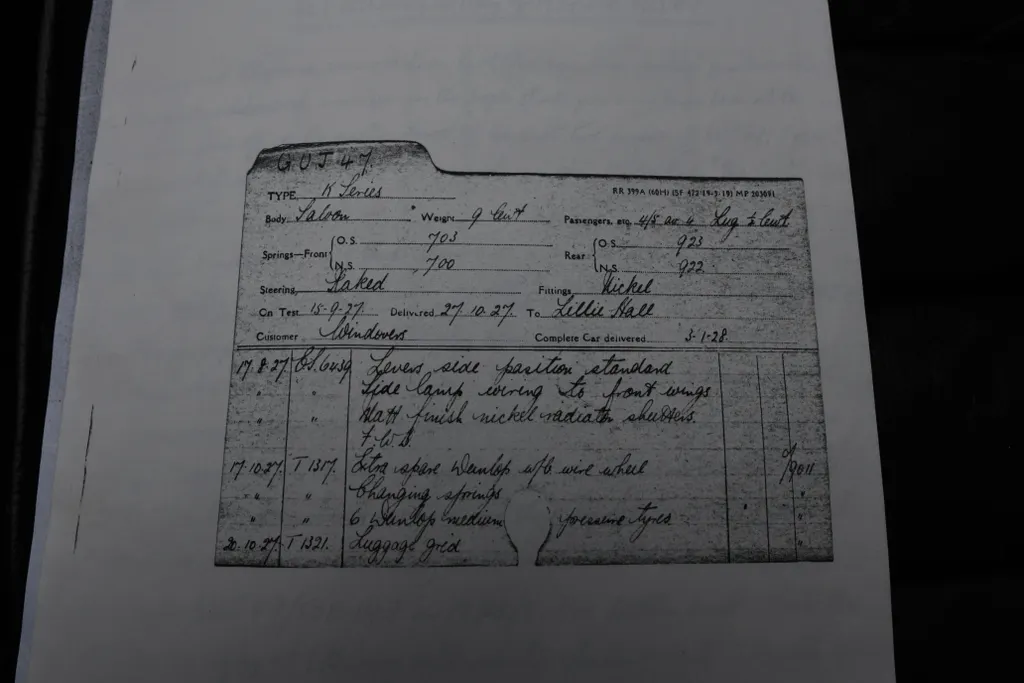 GUJ 47.
TYPE K Series RR 399A (60H) (SF 472 19-3-19) MP 203691
Body Saloon Weight 9 Cwt Passengers, etc. 4/5 av 4 Lug ½ Cwt
Springs—Front O.S. 703 Rear O.S. 923
N.S. 700 N.S. 922
Steering Raked Fittings Nickel
On Test 15-9-27. Delivered 27.10.27. To Lillie Hall
Customer Windovers Complete Car delivered 3-1-28.
17.8.27 6439 Levers side position standard
" " Side lamp wiring to front wings
" " Matt finish nickel radiator shutters.
F.W.B.
17.10.27. T 1317. Extra spare Dunlop w/b wire wheel 9011
" " Changing springs "
" " 6 Dunlop medium pressure tyres "
20.10.27. T 1321. Luggage grid "